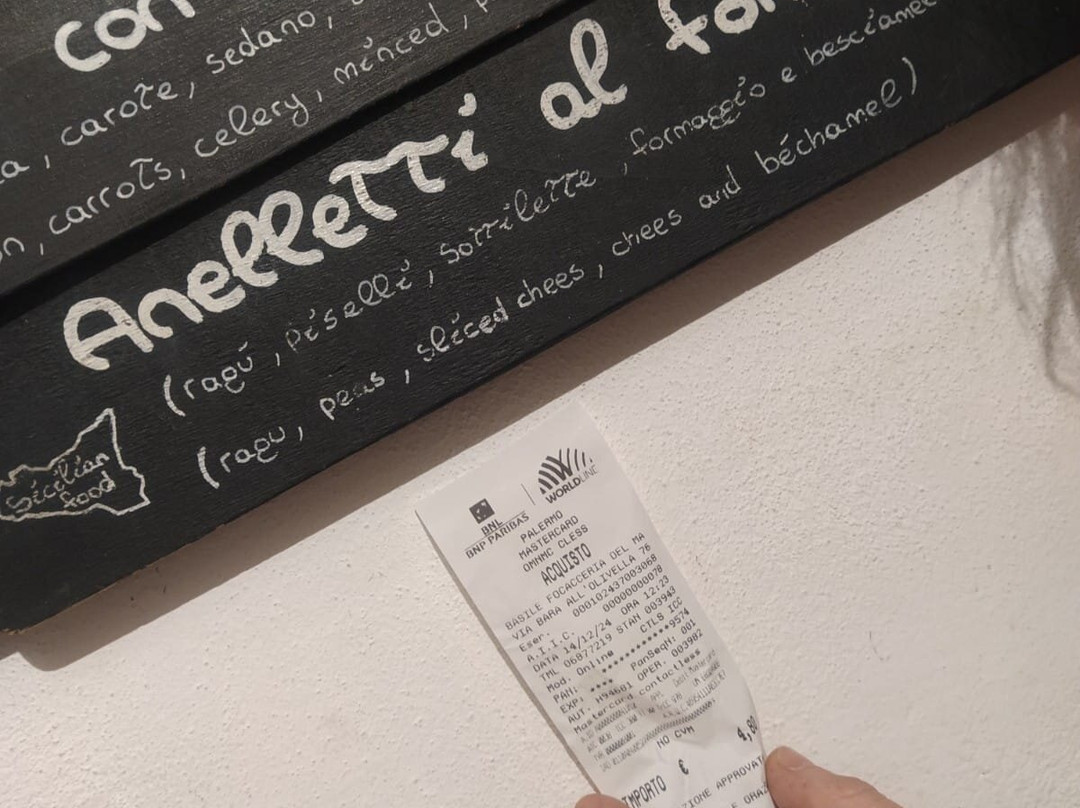 con
carote, sedano,
carrots, celery, minced,
Anelletti al
(ragú, piselli, sottilette, formaggio e
(ragu, peas, sliced chees, chees and béchamel)
sicilian
food
BNL
BNP PARIBAS
WORLDLINE
PALERMO
MASTERCARD
OMNMC CLESS
ACQUISTO
BASILE FOCACCERIA DEL MA
VIA BARA ALL'OLIVELLA 76
Eser. 000102437003068
A.I.I.C. 00000000078
DATA 14/12/24 ORA 12:23
TML 06877219 STAN 003943
Mod. Online CTLS ICC
PAN: ************9574
EXP: **** PanSeqN: 001
AUT. H94661 OPER. 003982
Mastercard contactless
NO CVM
IMPORTO € 4,80